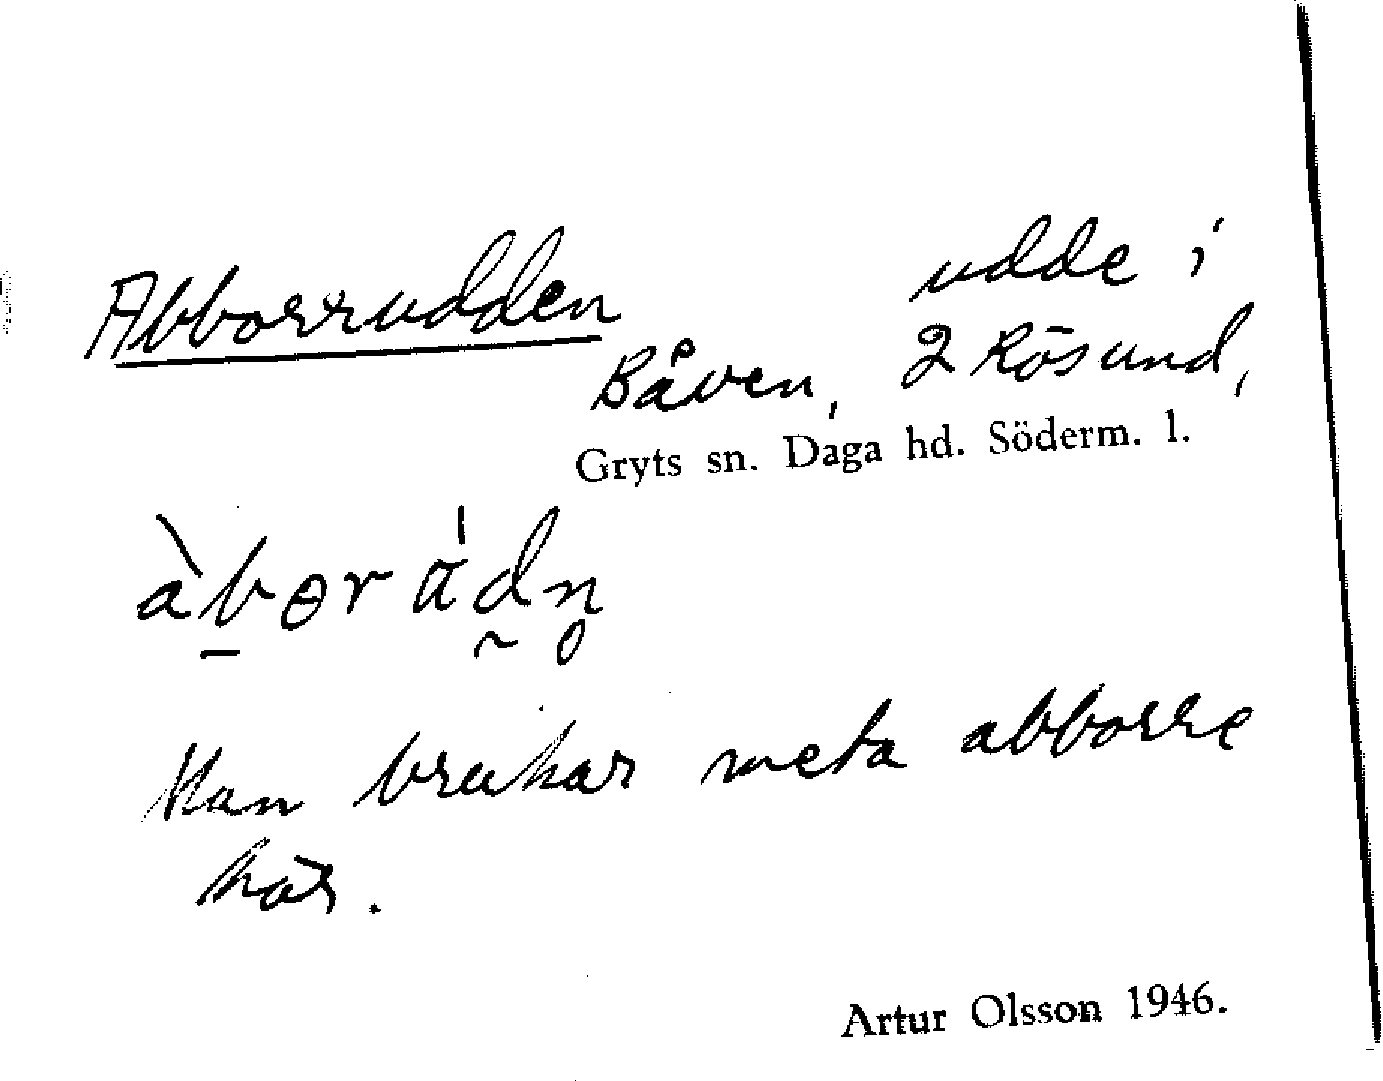 Abborrudden
udde i
Båven, 2 Rösund,
Gryts sn. Daga hd. Söderm. l.
Man brukar meta abborre
här.
Artur Olsson 1946.